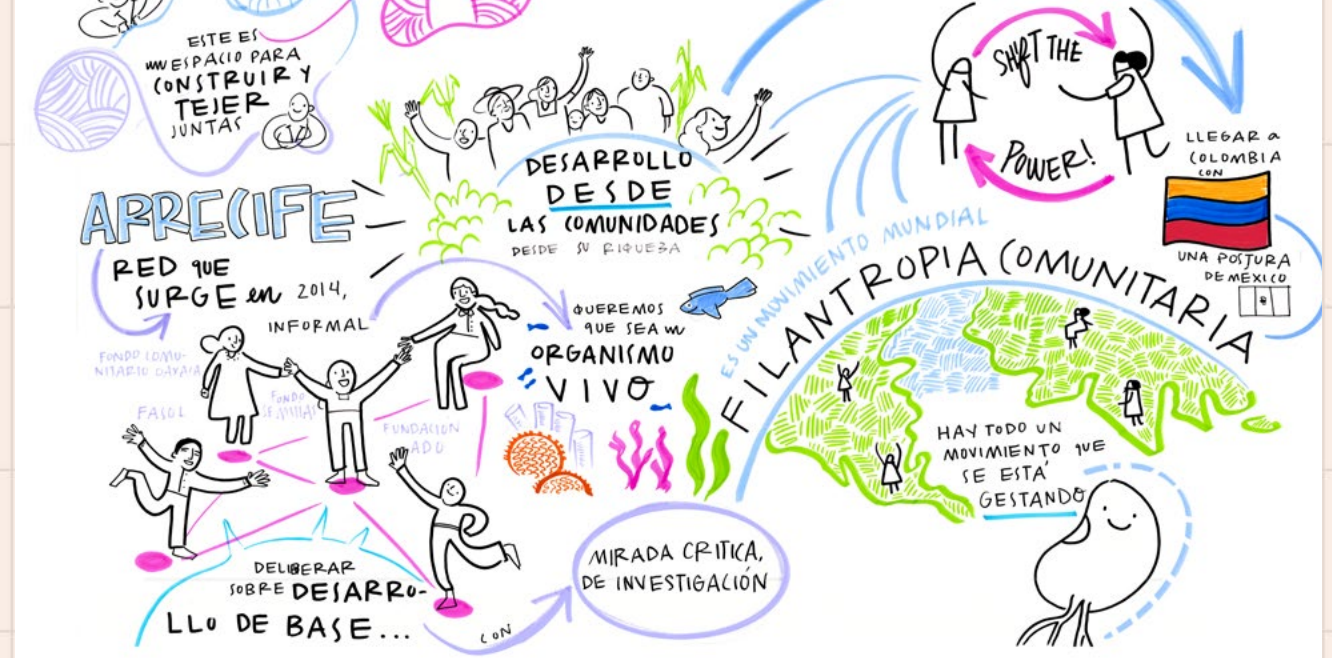 ESTE ES
UN ESPACIO PARA
CONSTRUIR Y
TEJER
JUNTAS
ARRECIFE
RED QUE
SURGE en 2014,
INFORMAL
FONDO COMU-
NITARIO OAXACA
FASOL
FONDO
SEMILLAS
FUNDACIÓN
ADO
DELIBERAR
SOBRE DESARRO-
LLO DE BASE...
CON
MIRADA CRITICA,
DE INVESTIGACIÓN
DESARROLLO
DESDE
LAS COMUNIDADES
DESDE SU RIQUEZA
QUEREMOS
QUE SEA UN
ORGANISMO
VIVO
SHIFT THE
POWER!
ES UN MOVIMIENTO MUNDIAL
FILANTROPIA COMUNITARIA
LLEGAR a
COLOMBIA
CON
UNA POSTURA
DE MÉXICO
HAY TODO UN
MOVIMIENTO QUE
SE ESTÁ
GESTANDO